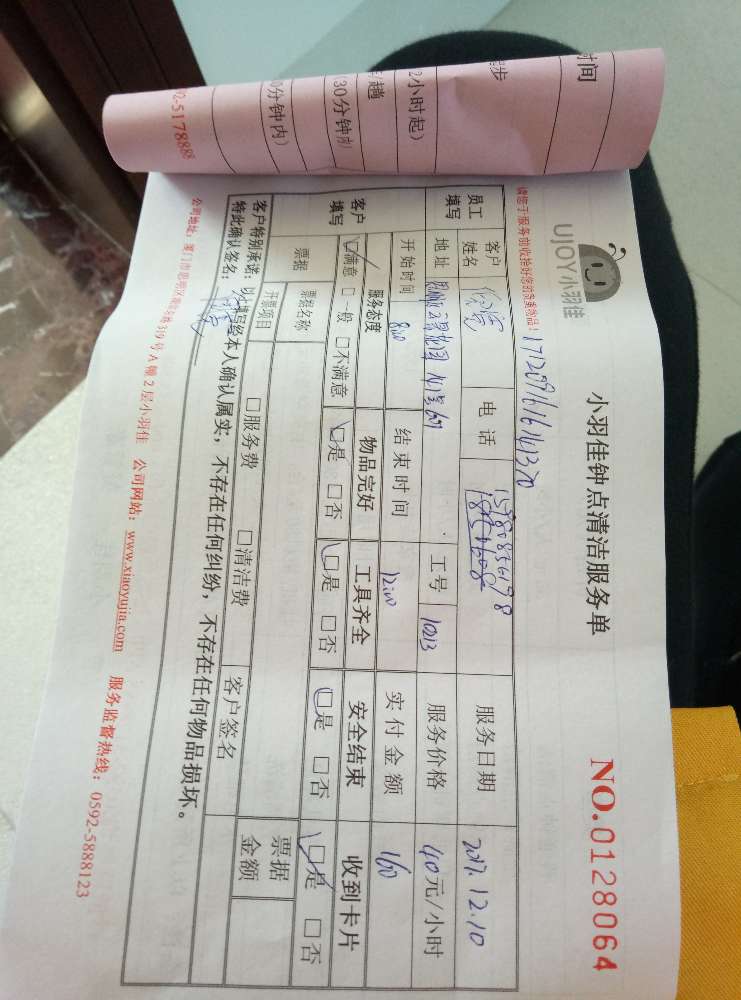 时间
2小时起）
趟
（30分钟内）
0分钟内）
92-5178888
UJOY小羽佳
小羽佳钟点清洁服务单
NO.0128064
请您于服务前收拾好您的贵重物品！
员工填写
客户姓名
电话
服务日期 2017.12.10
地址
工号 1013
服务价格 40元/小时
开始时间 8:00
结束时间 12:00
实付金额 160
客户填写
服务态度 物品完好 工具齐全 安全结束 收到卡片
□满意 □一般 □不满意 □是 □否 □是 □否 □是 □否 □是 □否
票据
票据名称
开票项目 □服务费 □清洁费
票据金额
客户签名
客户特别承诺：以上填写经本人确认属实，不存在任何纠纷，不存在任何物品损坏。
特此确认签名：
319号A幢2层小羽佳 公司网站：www.xiaoyujia.com 服务监督热线：0592-5888123